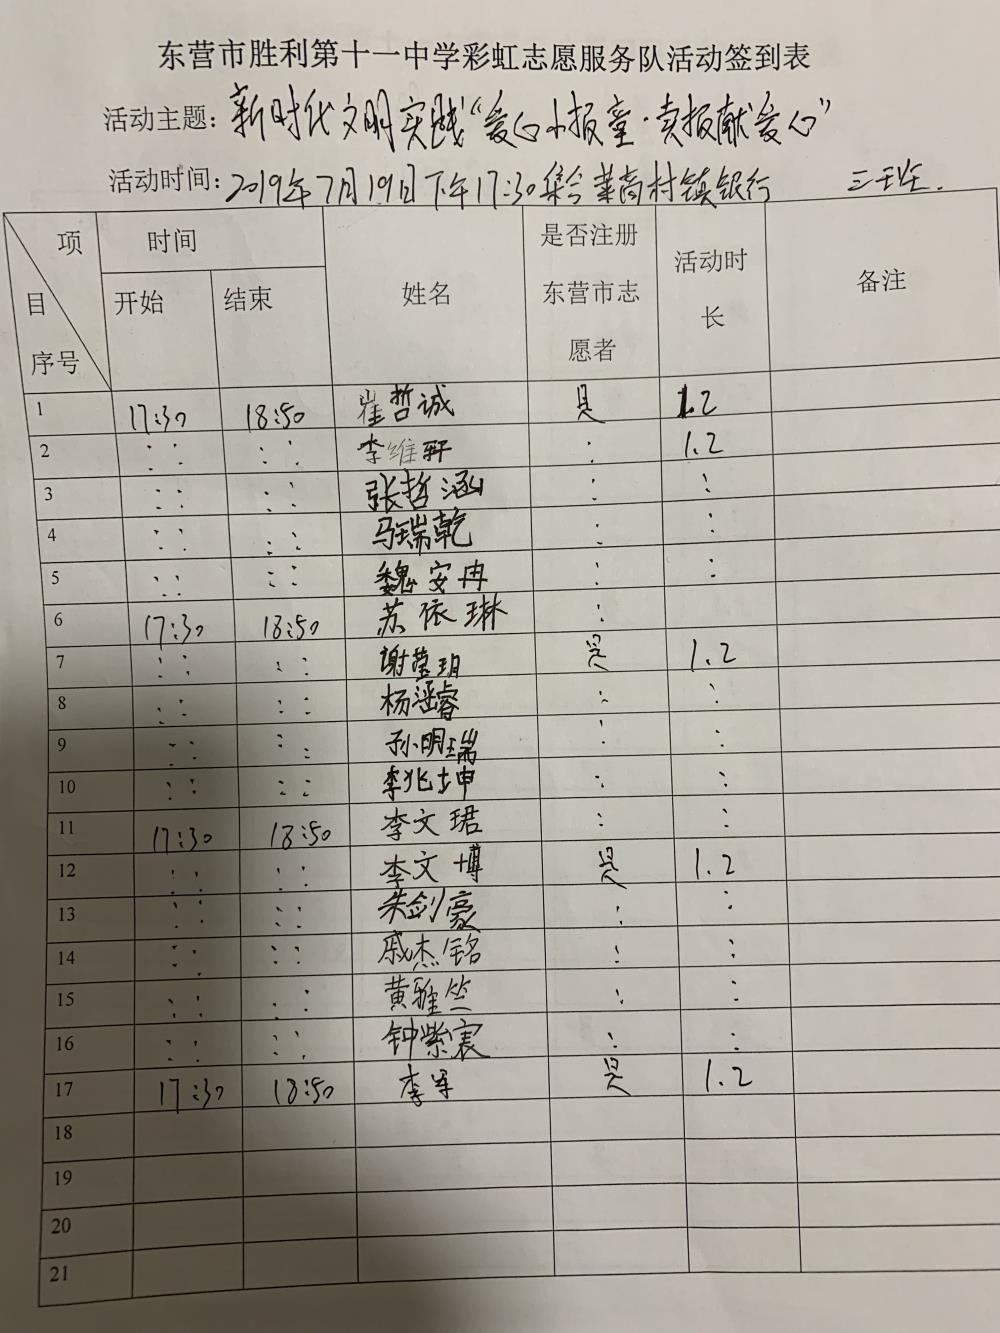 东营市胜利第十一中学彩虹志愿服务队活动签到表
活动主题：新时代文明实践“爱心小报童·卖报献爱心”
活动时间：2019年7月19日下午17:30集合莱商村镇银行 三班
项目 序号 时间 开始 结束 姓名 是否注册东营市志愿者 活动时长 备注
1 17:30 18:50 崔哲诚 是 1.2
2 : : : : 李维轩 : 1.2
3 : : : : 张哲涵 : :
4 : : : : 马瑞乾 : :
5 : : : : 魏安冉 : :
6 17:30 18:50 苏依琳 :
7 : : : : 谢莹玥 是 1.2
8 : : : : 杨涵睿 : :
9 : : : : 孙明瑞 : :
10 : : : : 李兆坤 : :
11 17:30 18:50 李文珺 : :
12 : : : : 李文博 是 1.2
13 : : : : 朱剑豪 : :
14 : : : : 戚杰铭 : :
15 : : : : 黄雅竺 : :
16 : : : : 钟紫宸 : :
17 17:30 18:50 李军 是 1.2
18
19
20
21